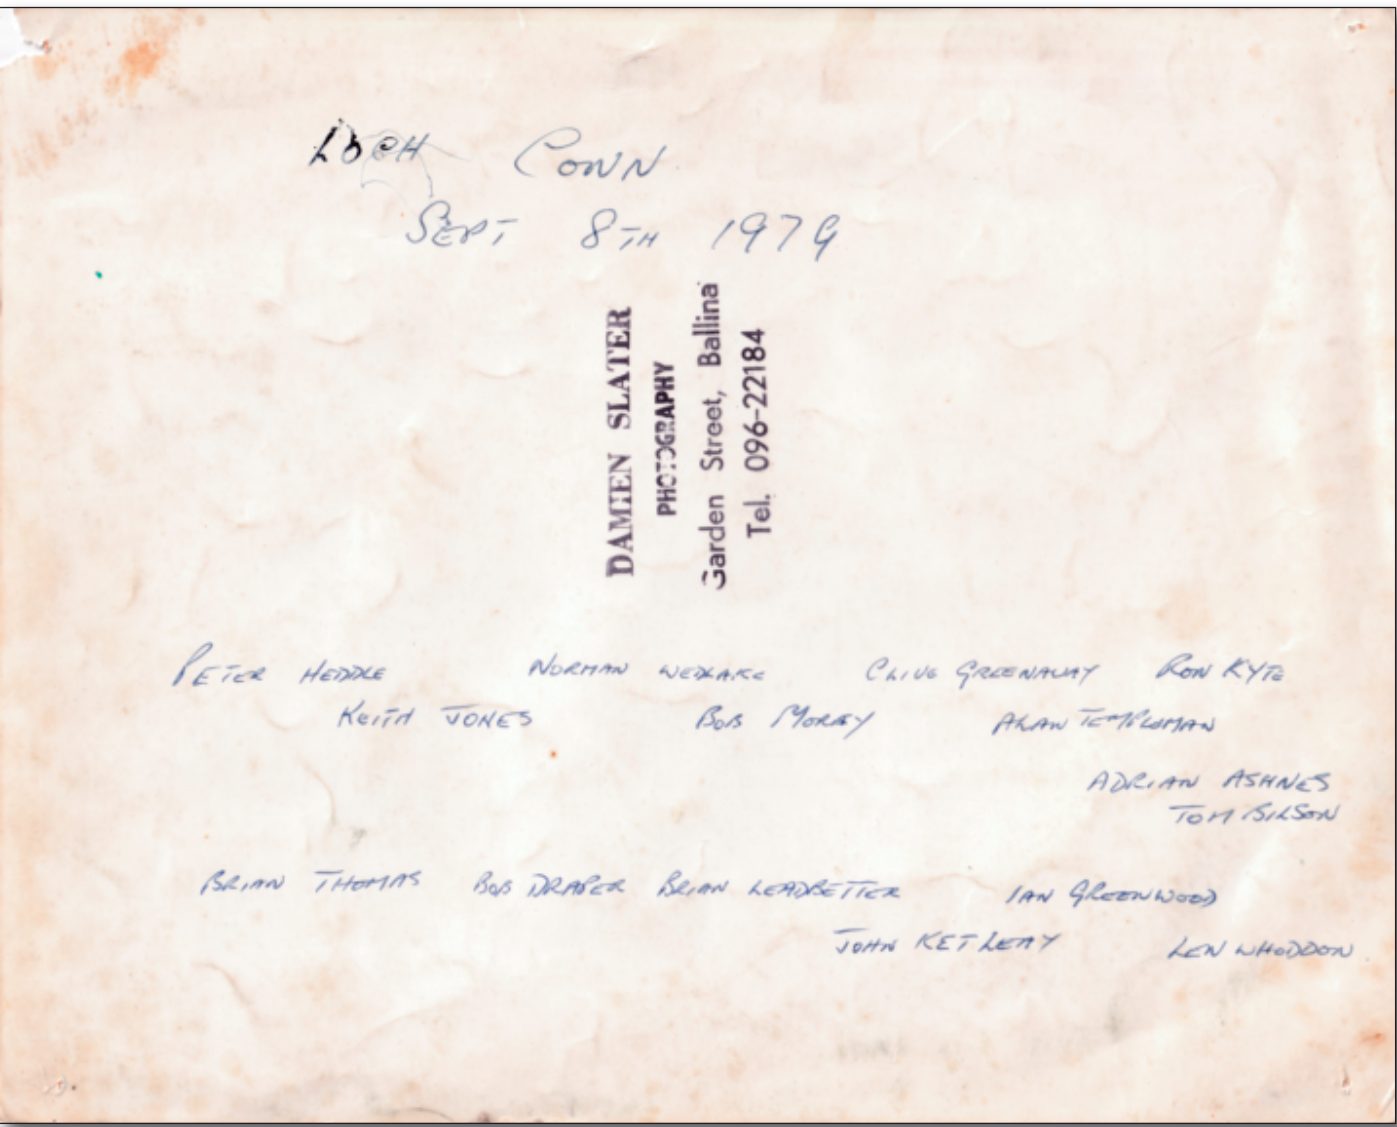 LOCH CONN
SEPT 8TH 1979
DAMIEN SLATER
PHOTOGRAPHY
Garden Street, Ballina
Tel. 096-22184
PETER HEDDLE NORMAN WEDLAKE CLIVE GREENAWAY RON KYTE
KEITH JONES BOB MOREY ALAN TEMPLEMAN
ADRIAN ASHNES
TOM BILSON
BRIAN THOMAS BOB DRAPER BRIAN LEADBETTER IAN GREENWOOD
JOHN KETLEAY LEN WHODDON